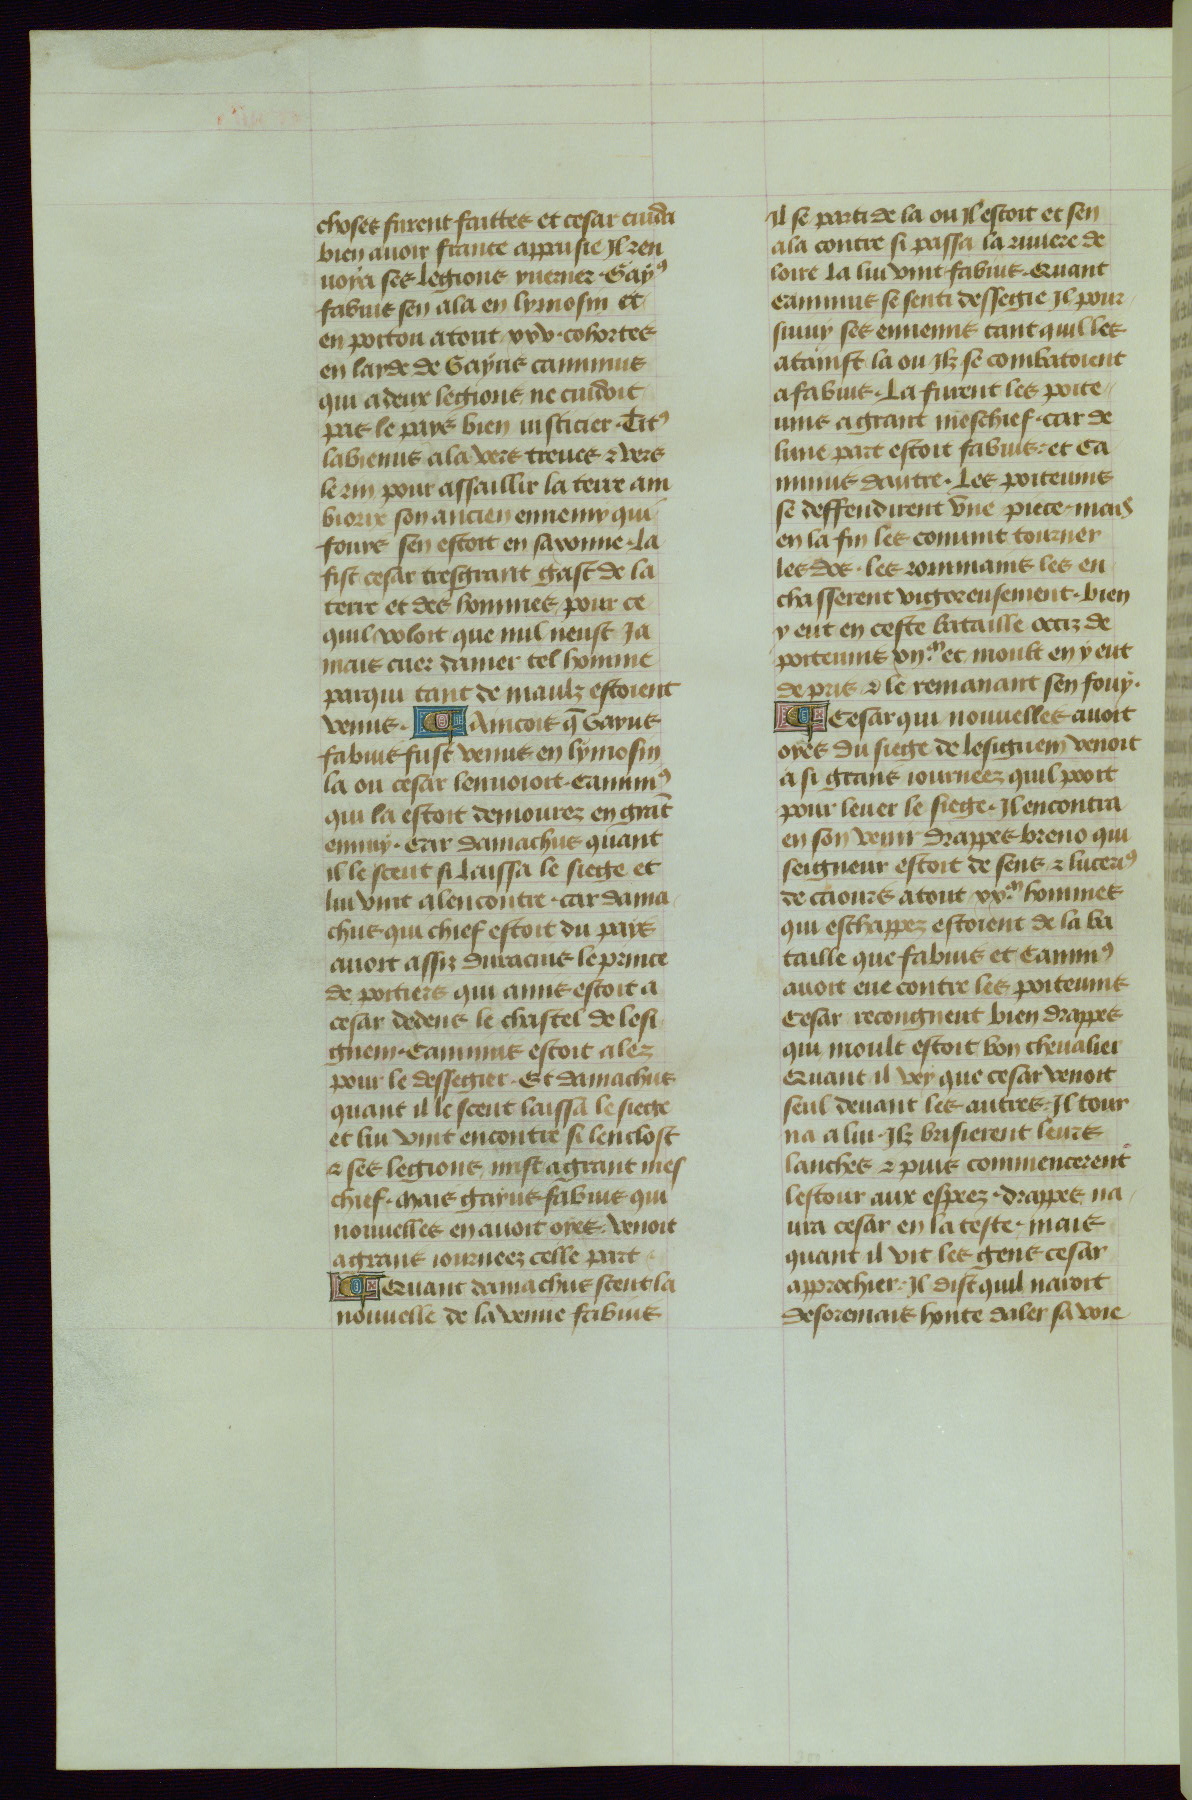 choses furent faittes et cesar cuida
bien auoir france appaisie Il ren
uoya ses legions yuerner. Gayꝰ
fabius sen ala en lymosin et
en poitou atout xxv. cohortes
en layde de Gayus caninius
qui a deux legions ne cuidoit
pas le pays bien iusticier. Titꝰ
labienus ala vers treues & vers
le rin pour assaillir la terre am
biorix son ancien ennemy qui
fouys sen estoit en saxonne. La
fist cesar tresgrant gast de la
terre et des hommes pour ce
quil voloit que nul neust Ja
mais cuer damer tel homme
parqui tant de maulz estoient
venus. Aincois q̃ Gayus
fabius fust venus en lymosin
la ou cesar lenuoioit. Caniniꝰ
qui la estoit demourez en grãt
ennuy. Car damachus quant
il le sceut si laissa le siege et
lui vint alencontre. car dama
chus qui chief estoit du pays
auoit assiz duracius le prince
de poitiers qui amis estoit a
cesar dedens le chastel de lesi
gnem. Caninius estoit alez
pour le dessegier. Et damachus
quant il le sceut laissa le siege
et lui vint encontre si lenclost
& ses legions mist a grant mes
chief. Mais gayus fabius qui
nouuelles en auoit oyes. venoit
a grans iourneez celle part
Quant damachus sceut la
nouuelle de la venue fabius
Il se parti de la ou Il estoit et sen
ala contre si passa la riuiere de
loire La lui vint fabius. Quant
caninius se senti dessegie Il pour
siuuy ses ennemis tant quil les
atainst la ou Ilz se combatoient
a fabius. La furent les poite
uins a grant meschief. car de
lune part estoit fabius. et Ca
ninius dautre. Les poiteuins
se deffendirent vne piece. mais
en la fin les conuint tourner
les dos. les rommains les en
chasserent vigoreusement. bien
y eut en ceste bataille occiz de
poiteuins xij.ᵐ et moult en y eut
de pris & le remanant sen fouy.
Cesar qui nouuelles auoit
oyes du siege de lesignem venoit
a si grans iourneez quil pooit
pour leuer le siege. Il encontra
en son venir drappes breno qui
seigneur estoit de sens & luceriꝰ
de caours atout xx.ᵐ hommes
qui eschappez estoient de la ba
taille que fabius et Caniniꝰ
auoit eue contre les poiteuins
Cesar recongneut bien drappes
qui moult estoit bon cheualier
Quant il vey que cesar venoit
seul deuant les autres. Il tour
na a lui. Ilz brisierent leurs
lanches & puis commencerent
lestour aux espeez. drappes na
ura cesar en la teste. mais
quant il vit les gens cesar
approchier. Il dist quil naroit
desoremais honte daler sa voie